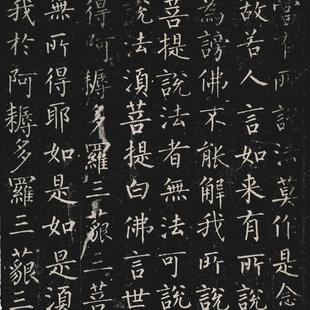 當有所說法莫作是念
故若人言如来有所說
為謗佛不能解我所說
菩提說法者無法可說
說法須菩提白佛言世
得阿耨多羅三藐三菩
無所得耶如是如是須
我於阿耨多羅三藐三